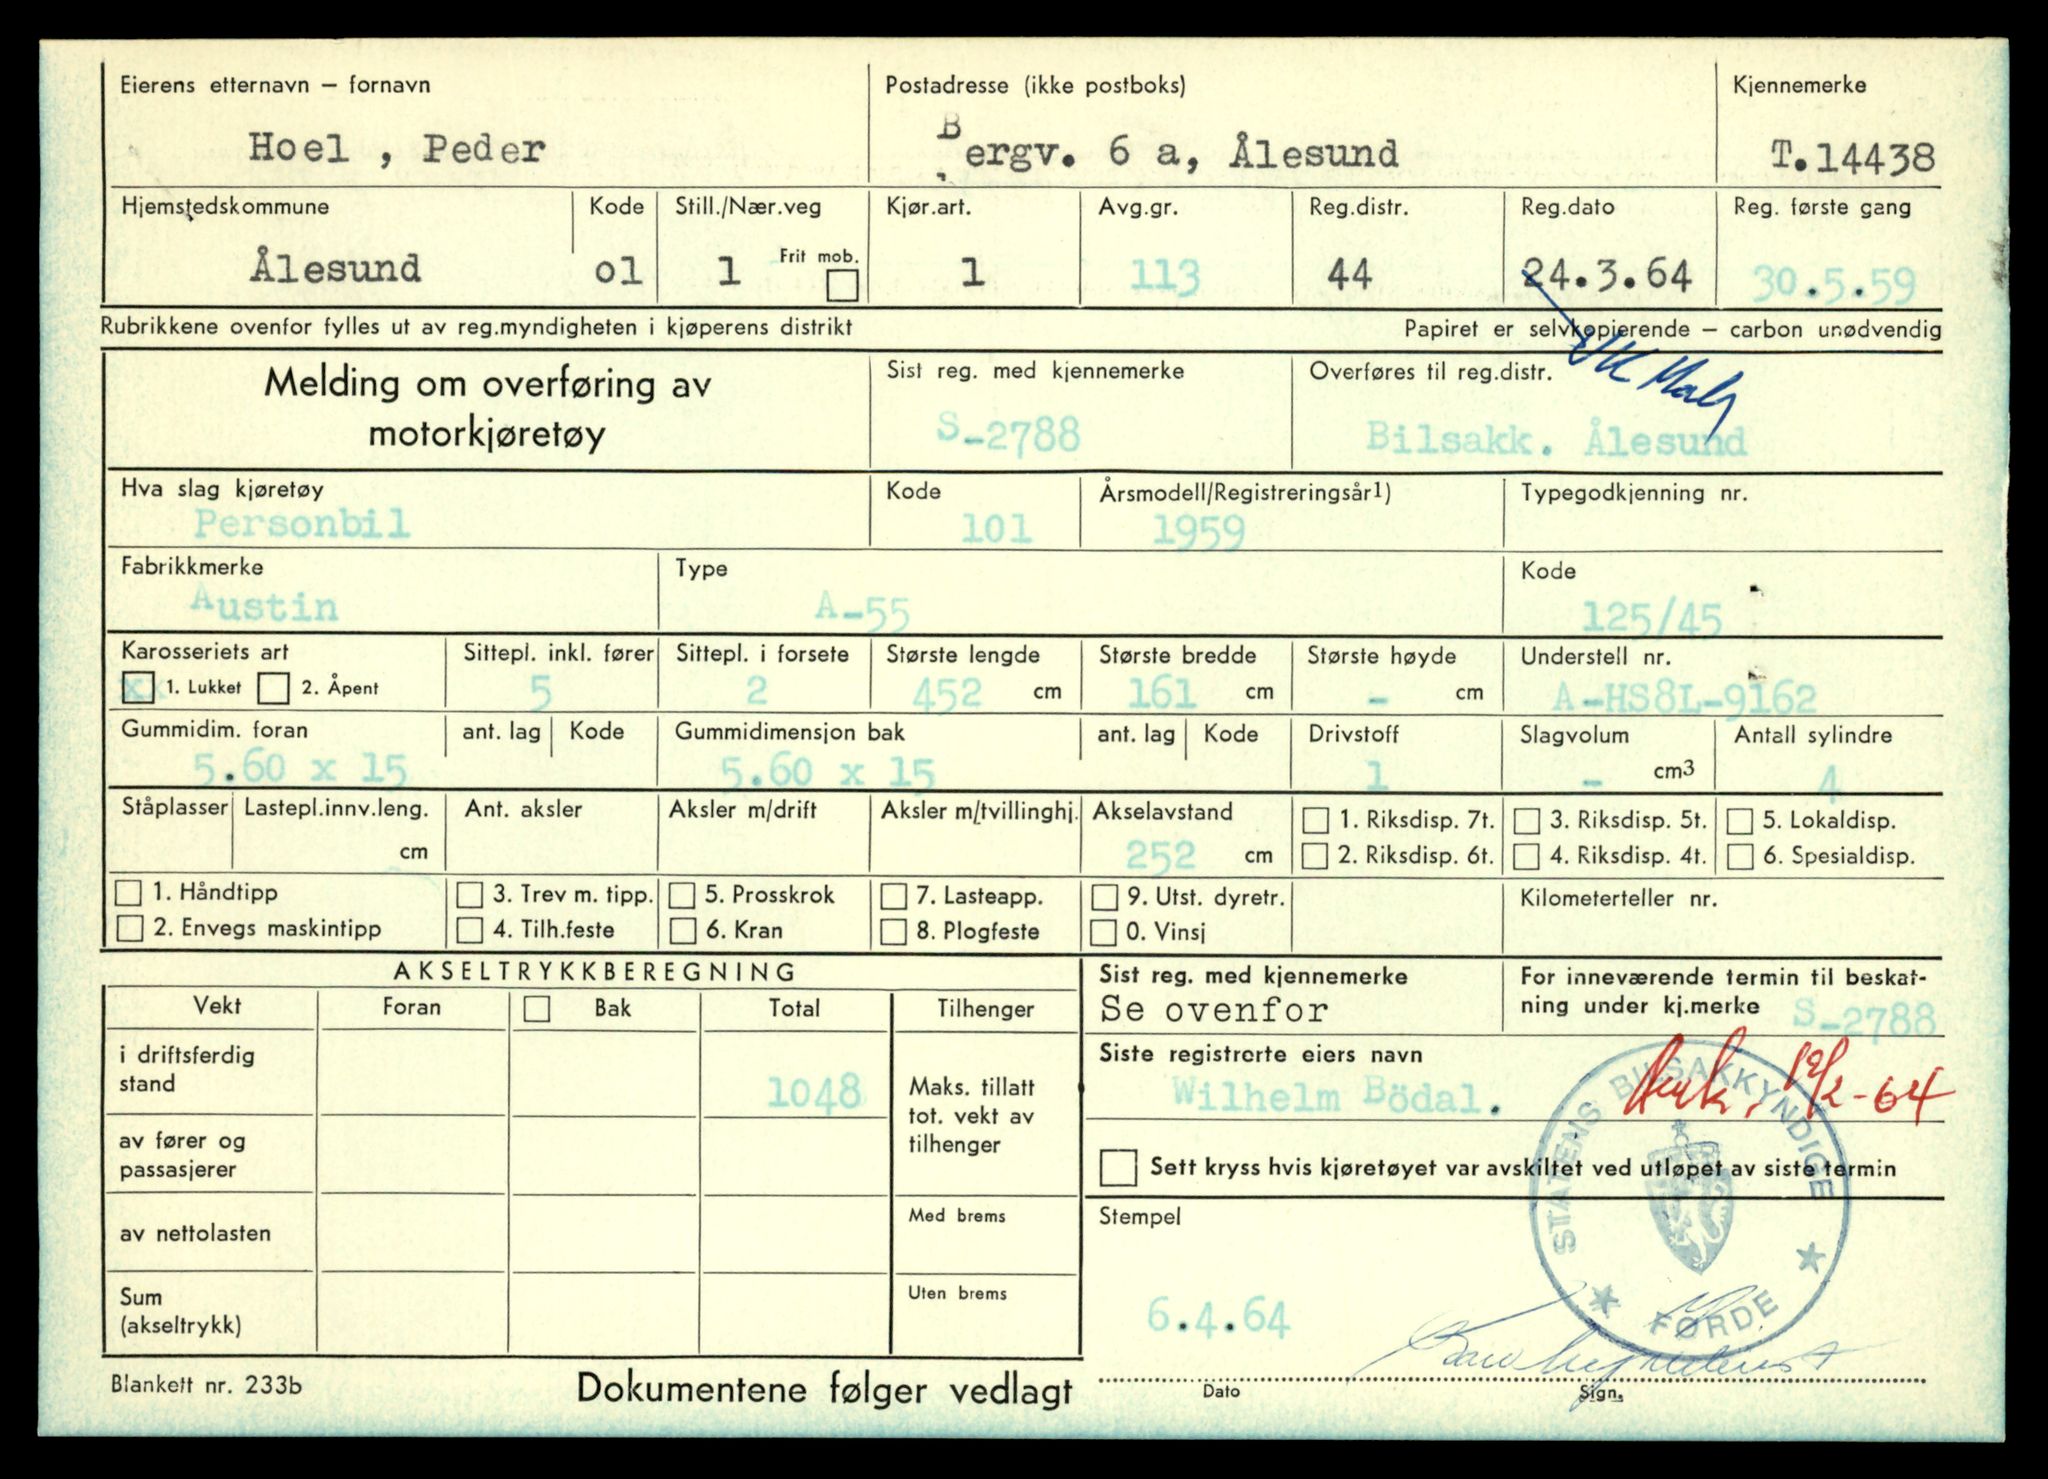 Eierens etternavn – fornavn Postadresse (ikke postboks) Kjennemerke
Hoel , Peder Bergv. 6 a, Ålesund T.14438
Hjemstedskommune Kode Still./Nær.veg Kjør.art. Avg.gr. Reg.distr. Reg.dato Reg. første gang
Frit mob.
Ålesund 01 1 1 113 44 24.3.64 30.5.59
Rubrikkene ovenfor fylles ut av reg.myndigheten i kjøperens distrikt Papiret er selvkopierende – carbon unødvendig
Melding om overføring av
motorkjøretøy
Sist reg. med kjennemerke Overføres til reg.distr.
S-2788 Bilsakk. Ålesund
Hva slag kjøretøy Kode Årsmodell/Registreringsår1) Typegodkjenning nr.
Personbil 101 1959
Fabrikkmerke Type Kode
Austin A-55 125/45
Karosseriets art Sittepl. inkl. fører Sittepl. i forsete Største lengde Største bredde Største høyde Understell nr.
xx 1. Lukket 2. Åpent 5 2 452 cm 161 cm - cm A-HS8L-9162
Gummidim. foran ant. lag Kode Gummidimensjon bak ant. lag Kode Drivstoff Slagvolum Antall sylindre
5.60 x 15 5.60 x 15 1 - cm3 4
Ståplasser Lastepl.innv.leng. Ant. aksler Aksler m/drift Aksler m/tvillinghj. Akselavstand 1. Riksdisp. 7t. 3. Riksdisp. 5t. 5. Lokaldisp.
cm 252 cm 2. Riksdisp. 6t. 4. Riksdisp. 4t. 6. Spesialdisp.
1. Håndtipp 3. Trev m. tipp. 5. Prosskrok 7. Lasteapp. 9. Utst. dyretr. Kilometerteller nr.
2. Envegs maskintipp 4. Tilh.feste 6. Kran 8. Plogfeste 0. Vinsj
AKSELTRYKKBEREGNING
Vekt Foran Bak Total Tilhenger
i driftsferdig
stand 1048
Maks. tillatt
tot. vekt av
tilhenger
av fører og
passasjerer
av nettolasten
Med brems
Sum
(akseltrykk)
Uten brems
Sist reg. med kjennemerke
Se ovenfor
For inneværende termin til beskat-
ning under kj.merke S-2788
Siste registrerte eiers navn
Wilhelm Bödal.
12/2-64
Sett kryss hvis kjøretøyet var avskiltet ved utløpet av siste termin
Stempel
STATENS BILSAKKYNDIGE
FØRDE
6.4.64
Dato Sign.
Blankett nr. 233b Dokumentene følger vedlagt